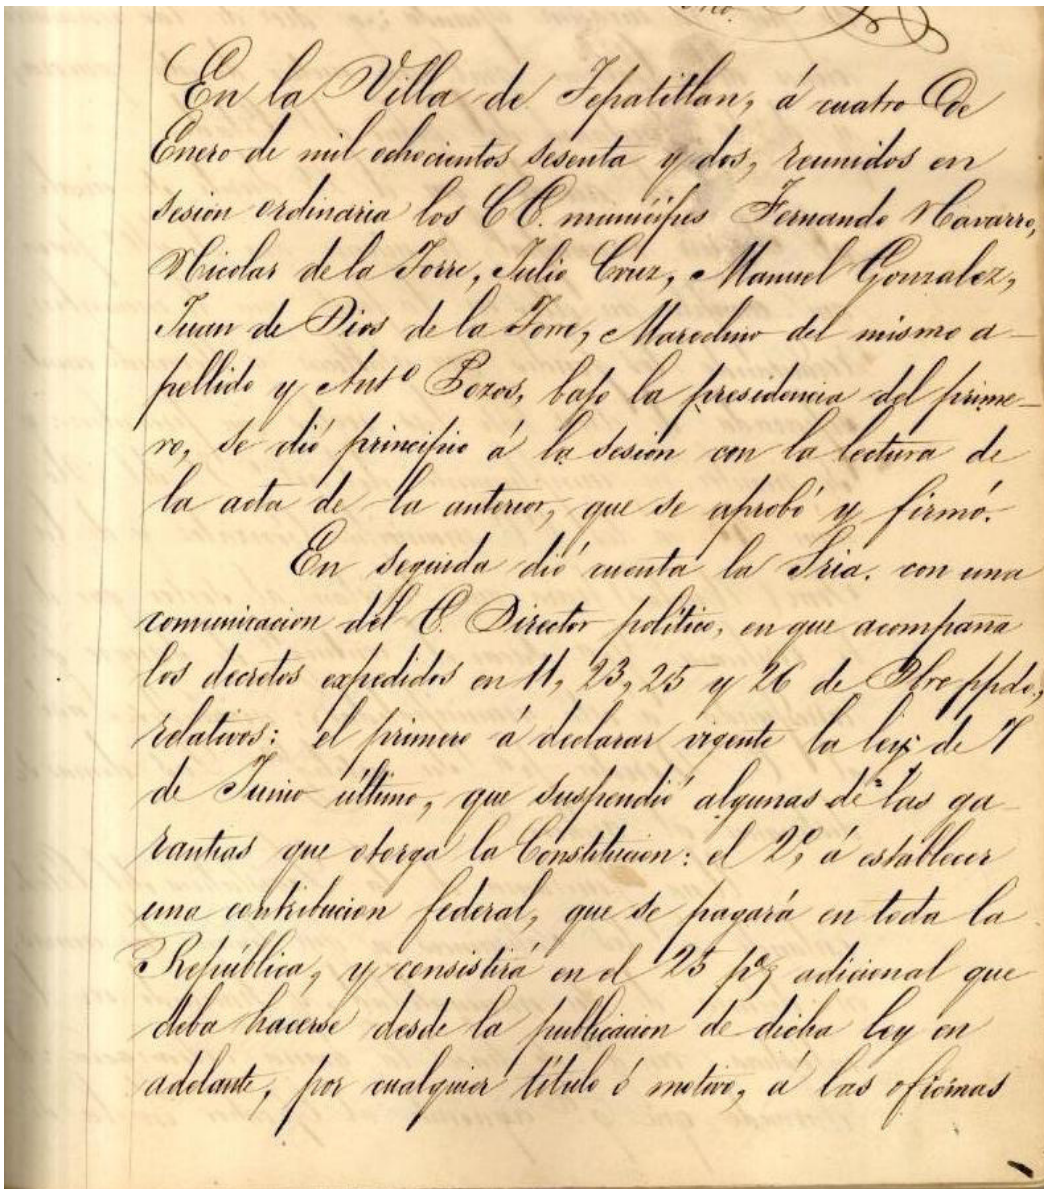 En la Villa de Tepatitlan, á cuatro de
Enero de mil ochocientos sesenta y dos, reunidos en
sesion ordinaria los CC. munícipes Fernando Navarro,
Nicolas de la Torre, Julio Cruz, Manuel Gonzalez,
Juan de Dios de la Torre, Marcelino del mismo a-
pellido y Antº Pozos, bajo la presidencia del prime-
ro, se dió principio á la sesion con la lectura de
la acta de la anterior, que se aprobó y firmó.
En seguida dió cuenta la Sria. con una
comunicacion del C. Director político, en que acompaña
los decretos expedidos en 11, 23, 25 y 26 de Dbre ppdo,
relativos: el primero á declarar vigente la ley de 7
de Junio último, que suspendió algunas de las ga-
rantias que otorga la Constitucion: el 2º, á establecer
una contribucion federal, que se pagará en toda la
República, y consistirá en el 25 p% adicional que
deba hacerse desde la publicacion de dicha ley en
adelante, por cualquier título ó motivo, á las oficinas